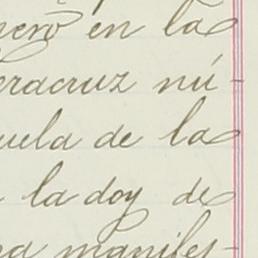 nero en la
eracruz nú-
uela de la
la doy de
na manifes-